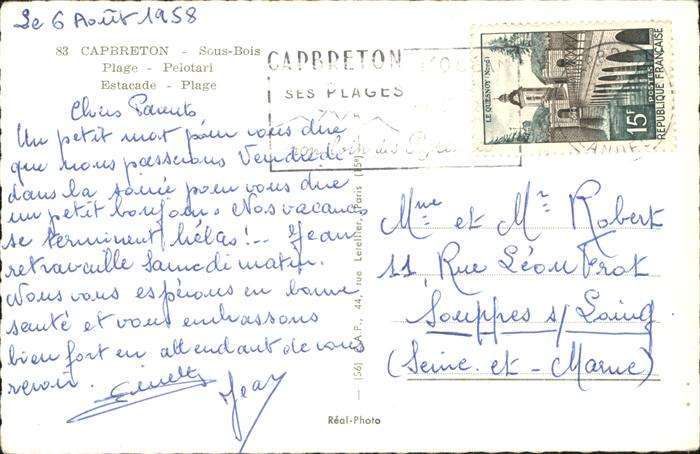 Le 6 Août 1958
83 CAPBRETON - Sous-Bois
Plage - Pelotari
Estacade - Plage
Chers Parents
Un petit mot pour vous dire
que nous passerons Vendredi
dans la soirée pour vous dire
un petit bonjour. Nos vacances
se terminent hélas!.. Jean
retravaille Samedi matin.
Nous vous espérons en bonne
santé et vous embrassons
bien fort en attendant de vous
revoir.
Jean
CAPBRETON
SES PLAGES
LE QUESNOY (Nord)
15F
POSTES
REPUBLIQUE FRANÇAISE
Mme et Mr Robert
11, Rue Léon Frot
Souppes s/ Loing
(Seine-et-Marne)
(56) C.A.P., 44, rue Letellier, Paris (15e)
Réal-Photo